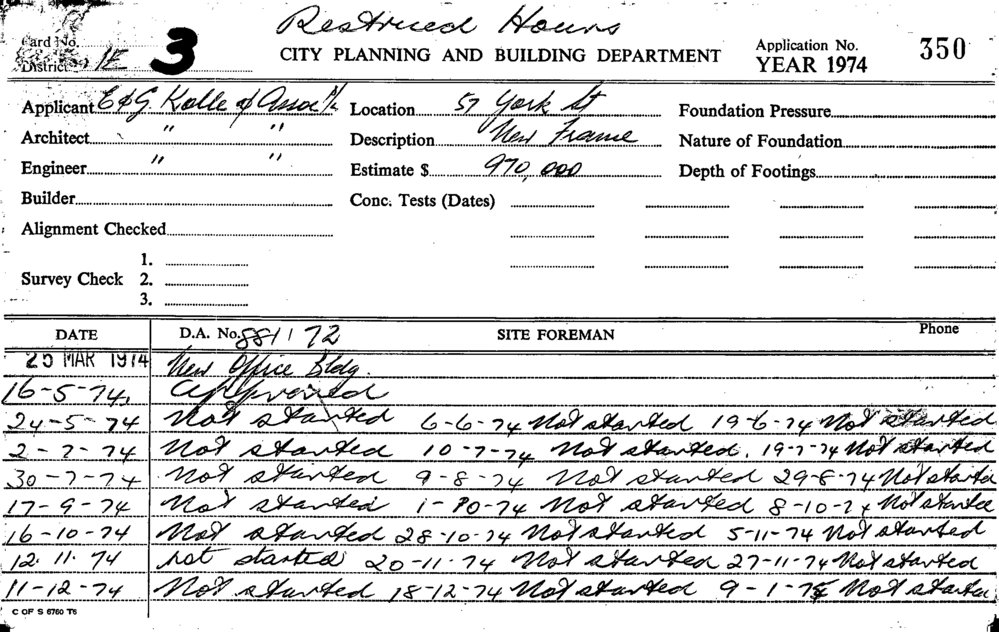 Restricted Hours
Card No. 3 CITY PLANNING AND BUILDING DEPARTMENT Application No. 350
District 1E YEAR 1974
Applicant E & G Kolle & Assoc P/L Location 57 York St Foundation Pressure
Architect " " Description New Frame Nature of Foundation
Engineer " " Estimate $ 970,000 Depth of Footings
Builder Conc. Tests (Dates)
Alignment Checked
1.
Survey Check 2.
3.
DATE D.A. No. 881/72 SITE FOREMAN Phone
25 MAR 1974 New Office Bldg.
16-5-74, Approved
24-5-74 Not started 6-6-74 Not started 19-6-74 Not started
2-7-74 Not started 10-7-74 Not started. 19-7-74 Not started
30-7-74 Not started 9-8-74 Not started 29-8-74 Not started
17-9-74 Not started 1-10-74 Not started 8-10-74 Not started
16-10-74 Not started 28-10-74 Not started 5-11-74 Not started
12.11.74 not started 20-11-74 Not started 27-11-74 Not started
11-12-74 Not started 18-12-74 Not started 9-1-75 Not started
C OF S 6760 T6